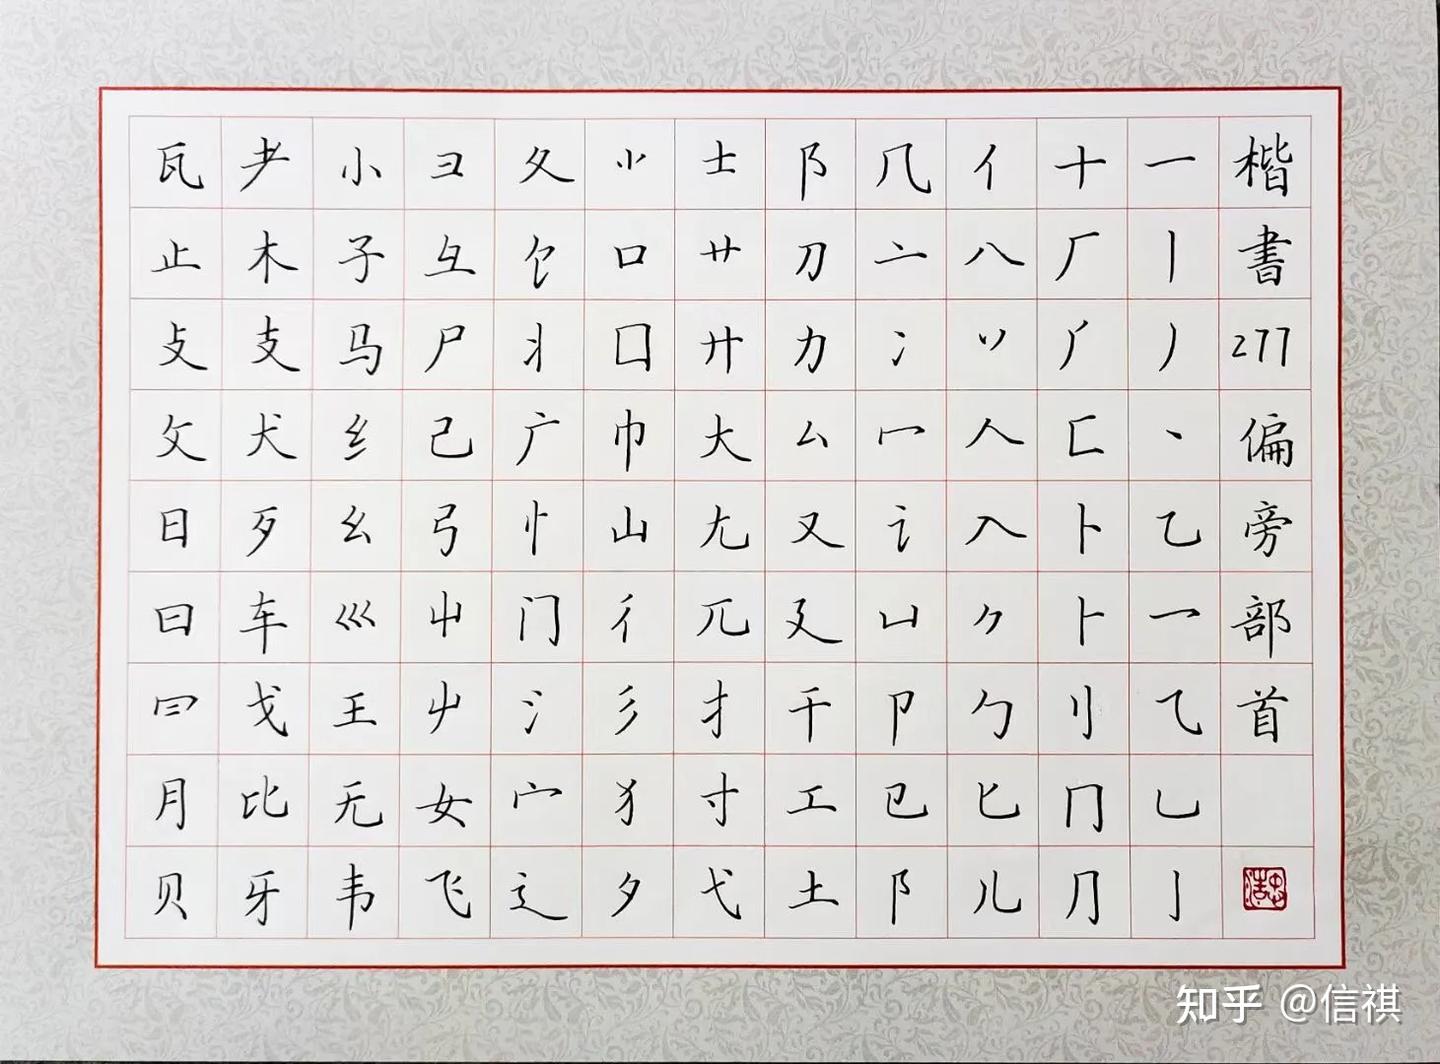 楷書277偏旁部首
一丨丿丶乙乛⺄乚亅
十厂𠂆匚卜⺊刂冂⺆
亻八丷人入⺈勹匕儿
几亠冫冖讠凵卩㔾阝
阝刀力厶又廴干工土
士艹廾大尢兀扌寸弋
⺌口囗巾山彳彡犭夕
夂饣丬广忄门氵宀辶
彐彑尸己弓屮屮女飞
小子马纟幺巛王无韦
耂木支犬歹车戈比牙
瓦止攴攵日曰⺜月贝
知乎 @信祺